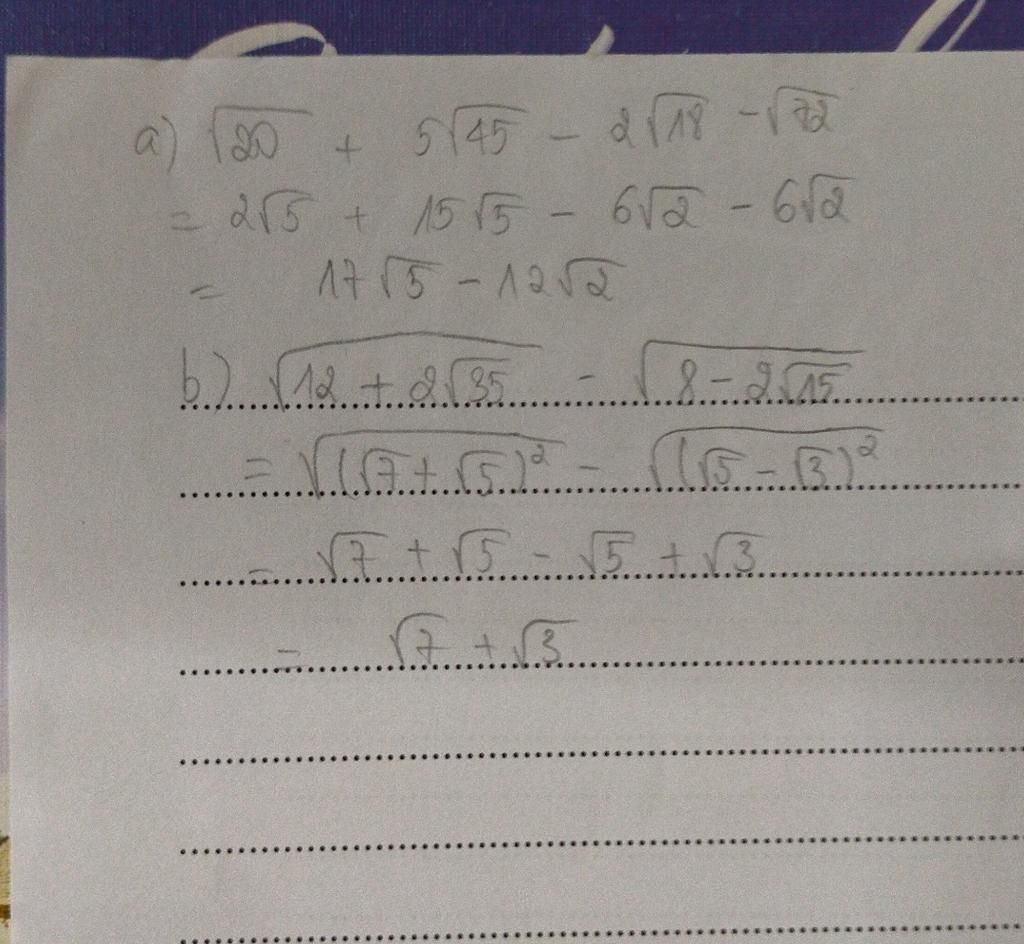 a) √20 + 5√45 - 2√18 - √72
= 2√5 + 15√5 - 6√2 - 6√2
= 17√5 - 12√2
b) √(12 + 2√35) - √(8 - 2√15)
= √((√7 + √5)²) - √((√5 - √3)²)
= √7 + √5 - √5 + √3
= √7 + √3